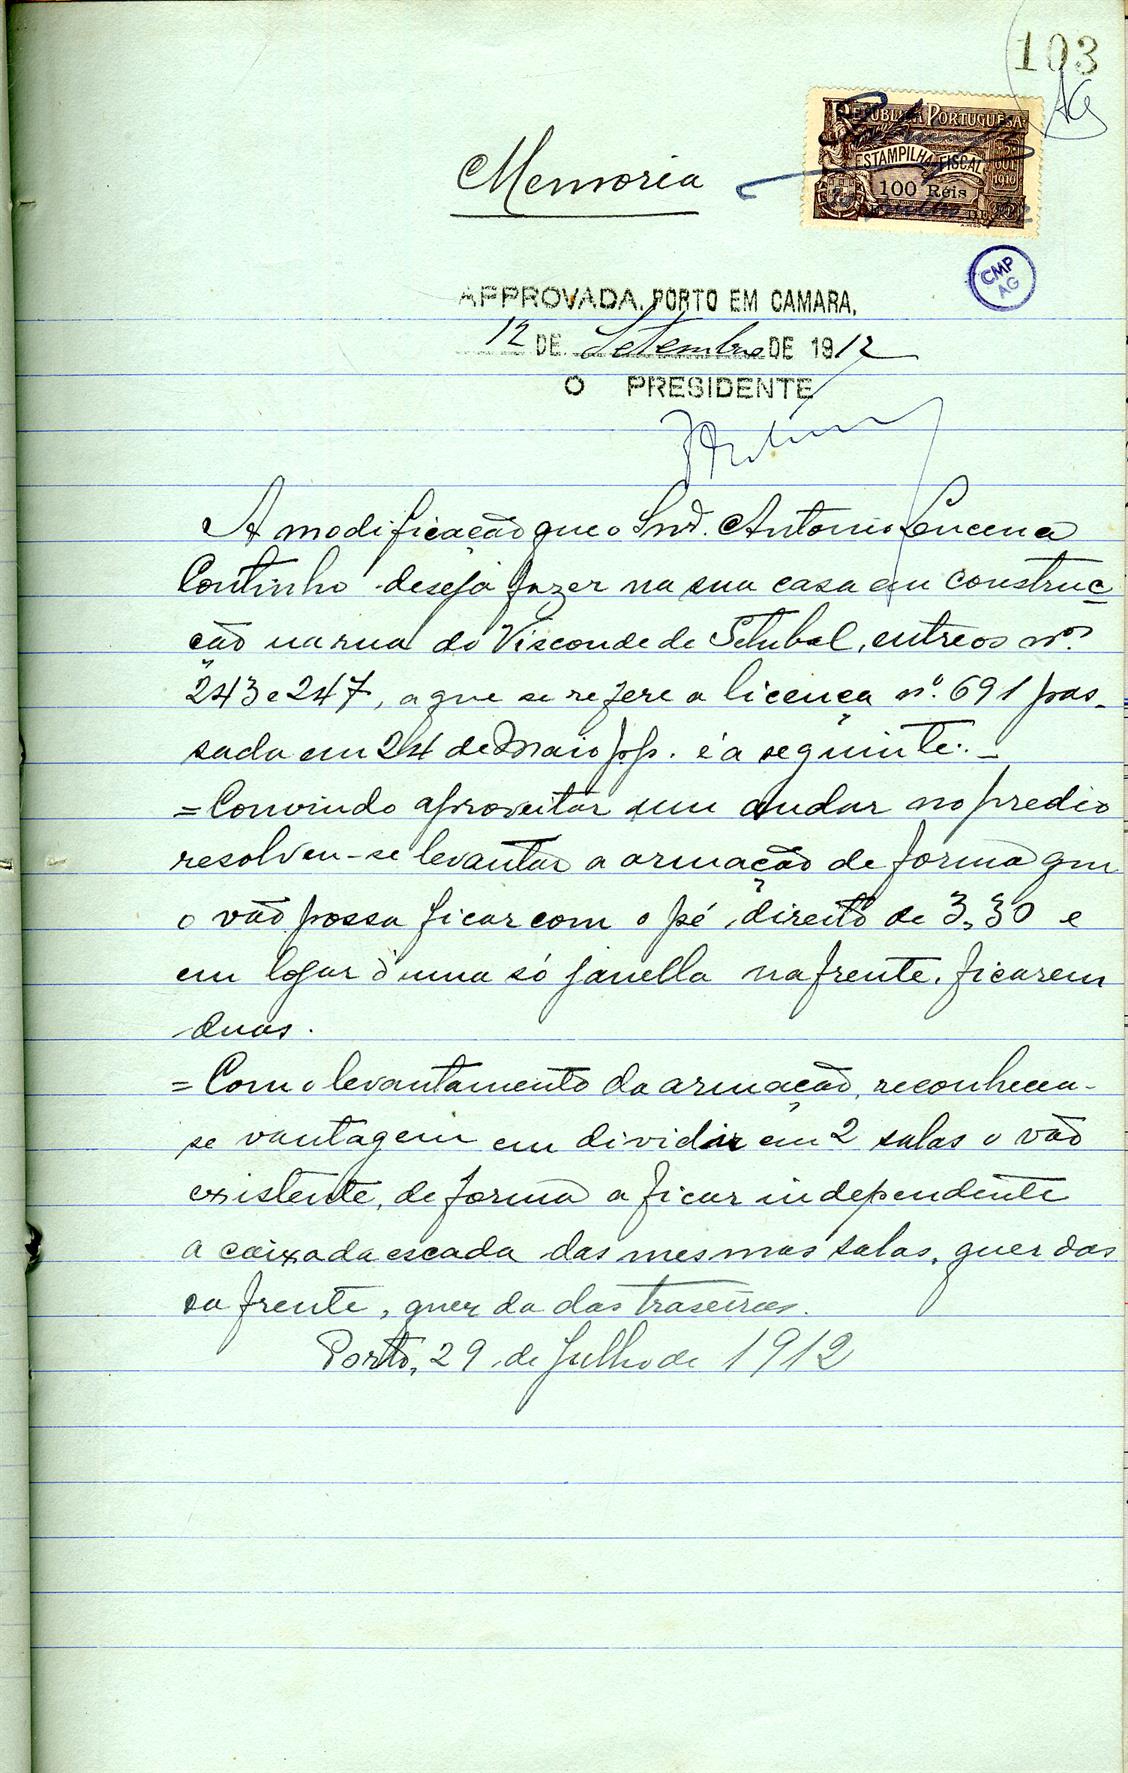 103
AG
REPUBLICA PORTUGUESA
ESTAMPILHA FISCAL
100 Réis
Memoria
CMP
AG
APPROVADA. PORTO EM CAMARA,
12 DE Setembro DE 1912
O PRESIDENTE
A modificação que o Snr. Antonio Lucena
Coutinho deseja fazer na sua casa em construc-
ção na rua do Visconde de Setubal, entre os nos.
243 e 247, a que se refere a licença nº. 691 pas-
sada em 24 de Maio p.p. é a seguinte:-
= Convindo aproveitar um andar no predio
resolveu-se levantar a armação de forma que
o vão possa ficar com o pé direito de 3,30 e
em logar d'uma só janella na frente, ficarem
duas.
= Com o levantamento da armação, reconheceu-
se vantagem em dividir em 2 salas o vão
existente, de forma a ficar independente
a caixa da escada das mesmas salas, quer das
da frente, quer da das trazeiras.
Porto, 29 de Julho de 1912